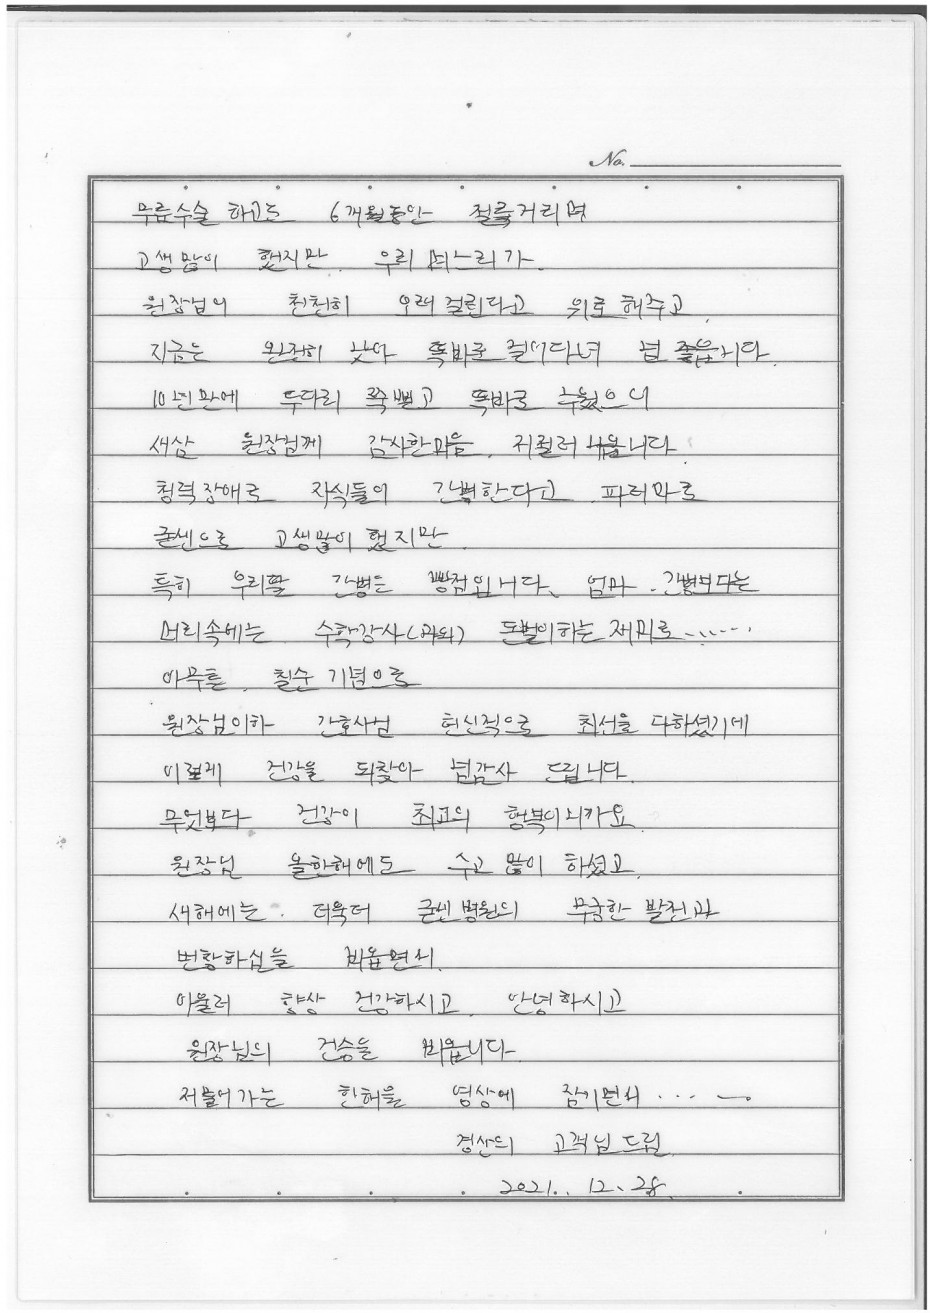 No.
무릎수술 하고도 6개월동안 절룩거리며
고생많이 했지만. 우리 며느리가.
원장님이 천천히 오래 걸린다고 위로 해주고.
지금은 완전히 낫아 똑바로 걸어다녀 넘 좋읍니다.
10년만에 두다리 쭉뻗고 똑바로 누웠으니
새삼 원장님께 감사한마음. 저절러 나옵니다.
청력장애로 자식들이 간병한다고 파러마로
굳센으로 고생많이 했지만.
특히 우리딸 간병은 빵점입니다. 엄마. 간병보다는
머리속에는 수학강사(과외) 돈벌이하는 재미로......
아무튼. 칠순 기념으로
원장님이하 간호사님 헌신적으로 최선을 다하셨기에
이렇게 건강을 되찾아 넘감사 드립니다.
무엇보다 건강이 최고의 행복이니까요.
원장님 올한해에도 수고 많이 하셨고.
새해에는. 더욱더 굳센병원의 무궁한 발전과
번창하심을 비옵면서.
아울러 향상 건강하시고. 안녕하시고
원장님의 건승을 비옵니다.
저물어가는 한해를 명상에 잠기면서 ....
경산의 고객님드림
2021. 12. 28.